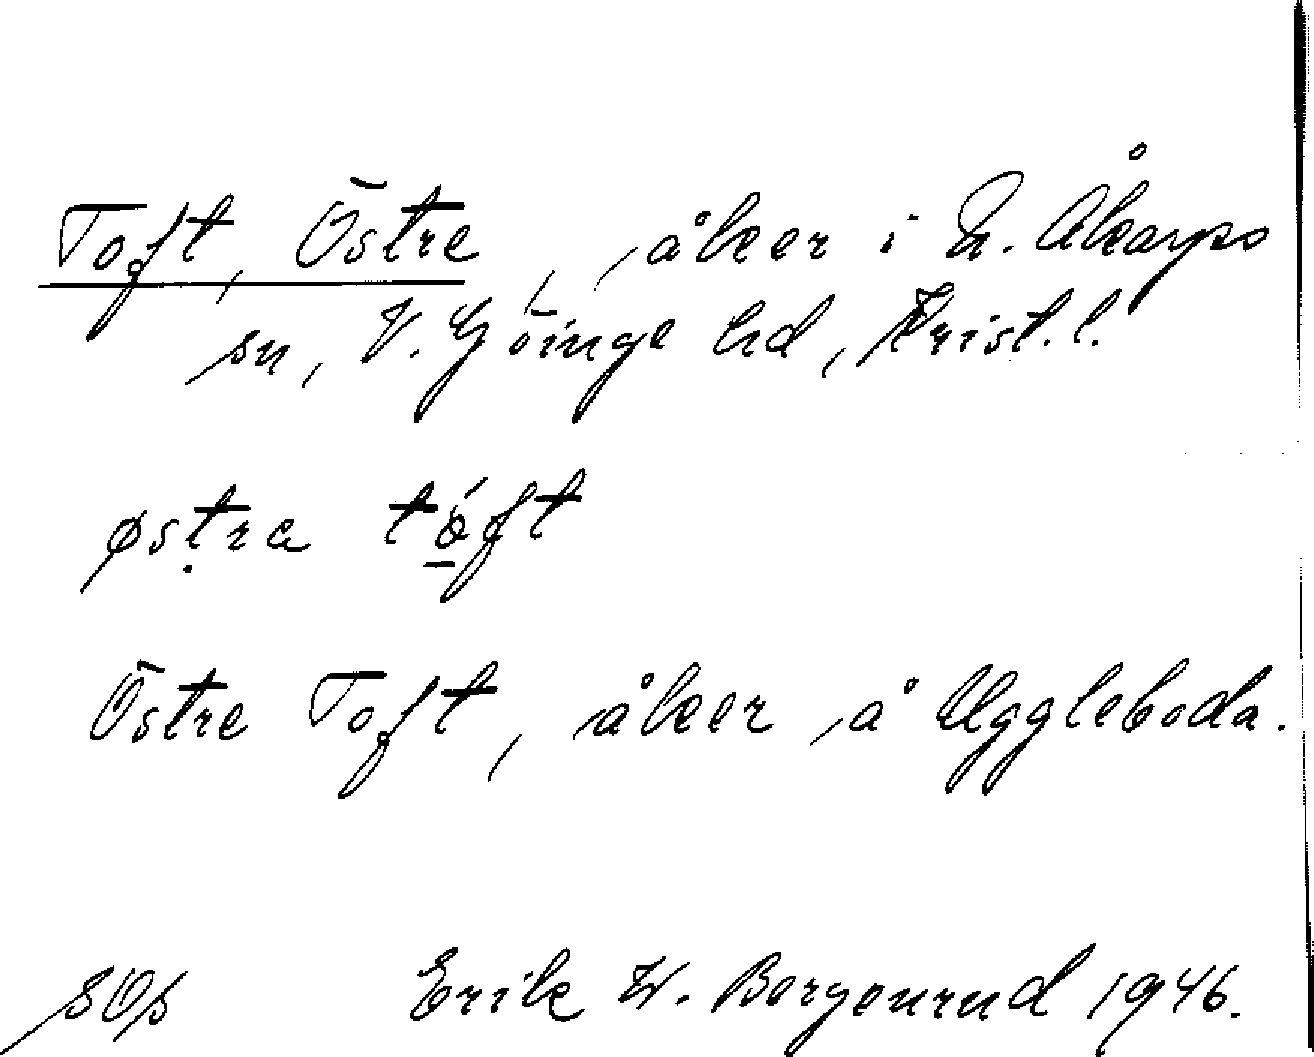 Toft, Östre, åker i N. Åkarps
sn, V. Göinge hd, Krist. l.
østra tóft
Östre Toft, åker å Uggleboda.
SOs Erik W. Bergenrud 1946.